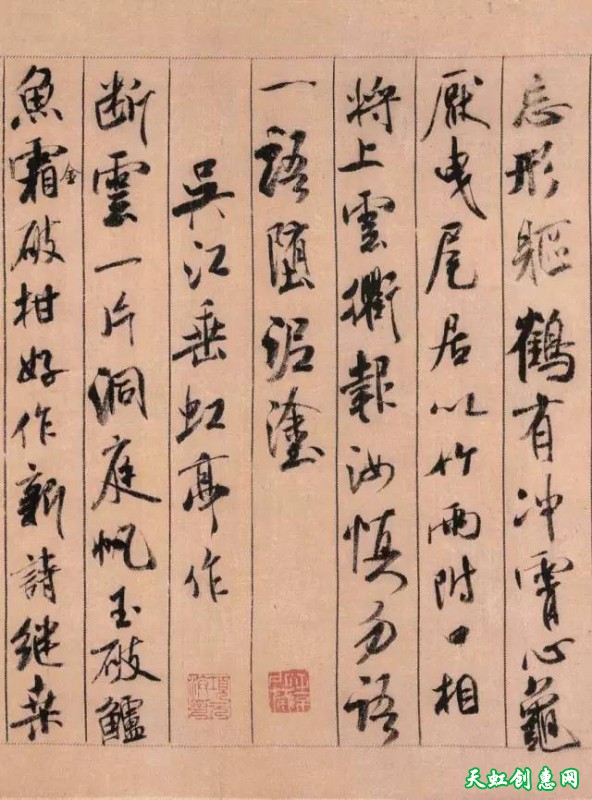 忘形軀鶴有冲霄心龜
厭曳尾居以竹兩附口相
將上雲衢報汝慎勿語
一語墮泥塗
吳江垂虹亭作
断雲一片洞庭帆玉破鱸
魚霜金破柑好作新詩継桒
天虹创惠网